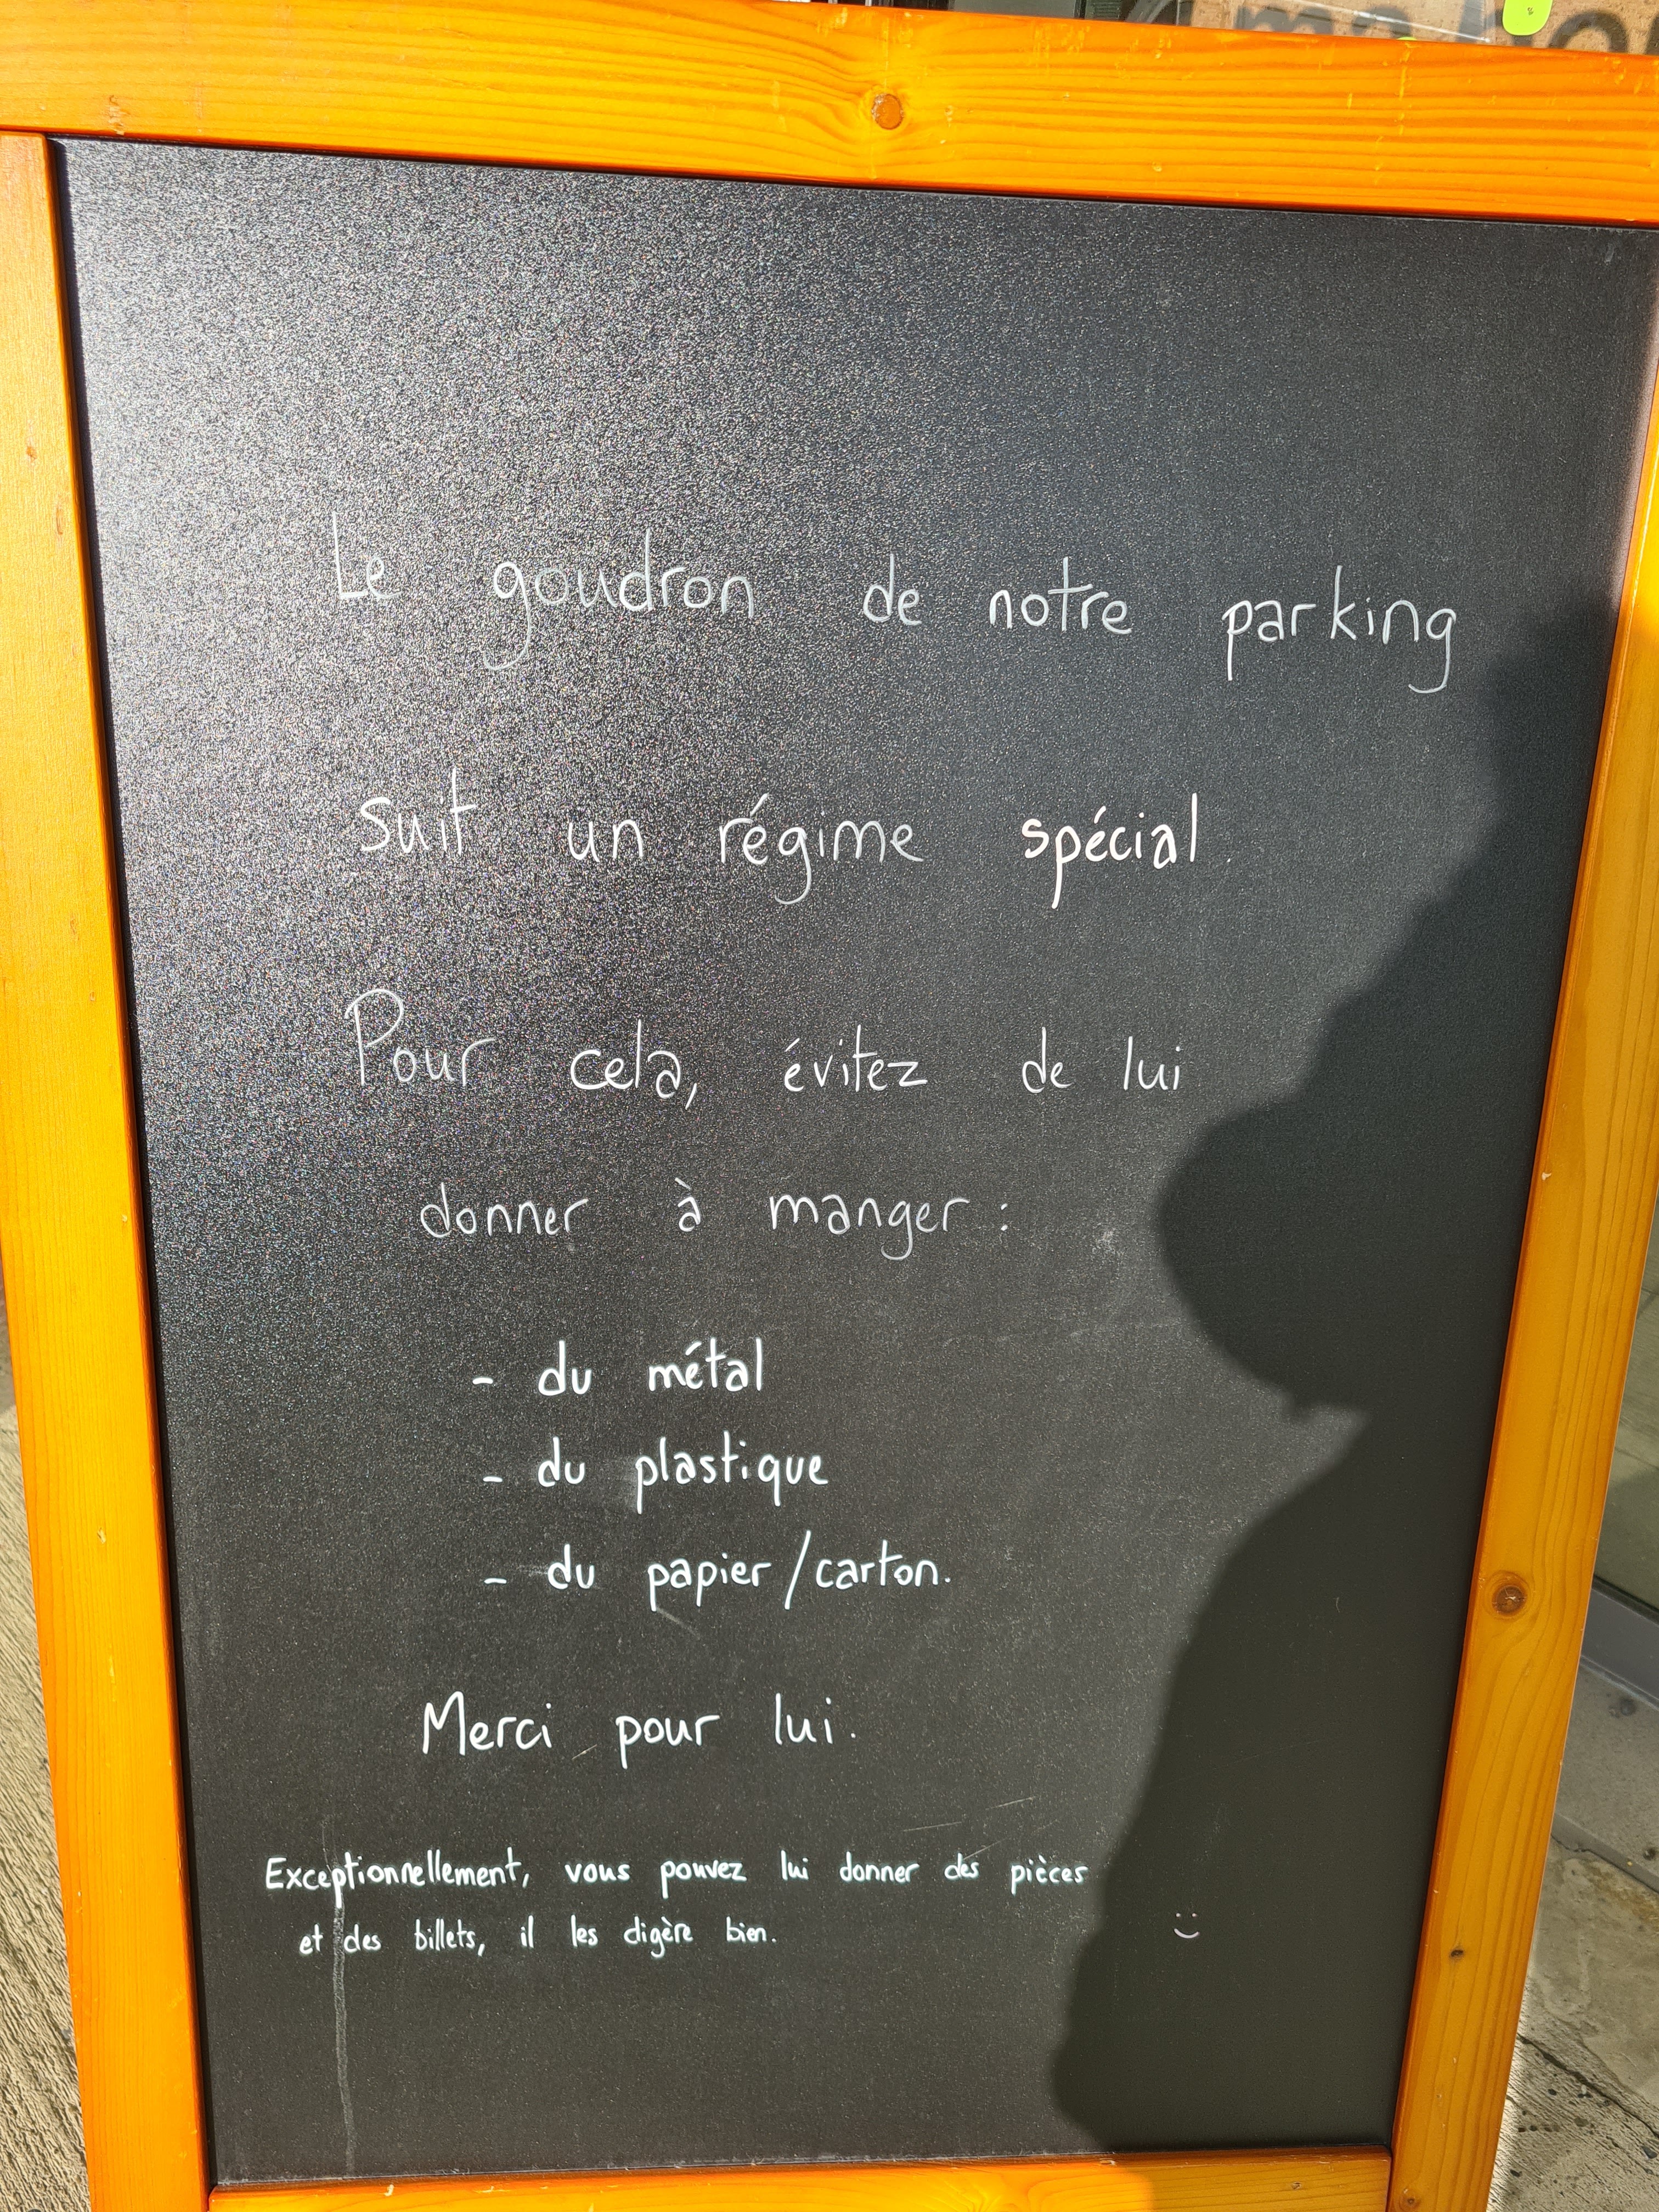 Le goudron de notre parking
suit un régime spécial.
Pour cela, évitez de lui
donner à manger :
- du métal
- du plastique
- du papier/carton.
Merci pour lui.
Exceptionnellement, vous pouvez lui donner des pièces
et des billets, il les digère bien. :)